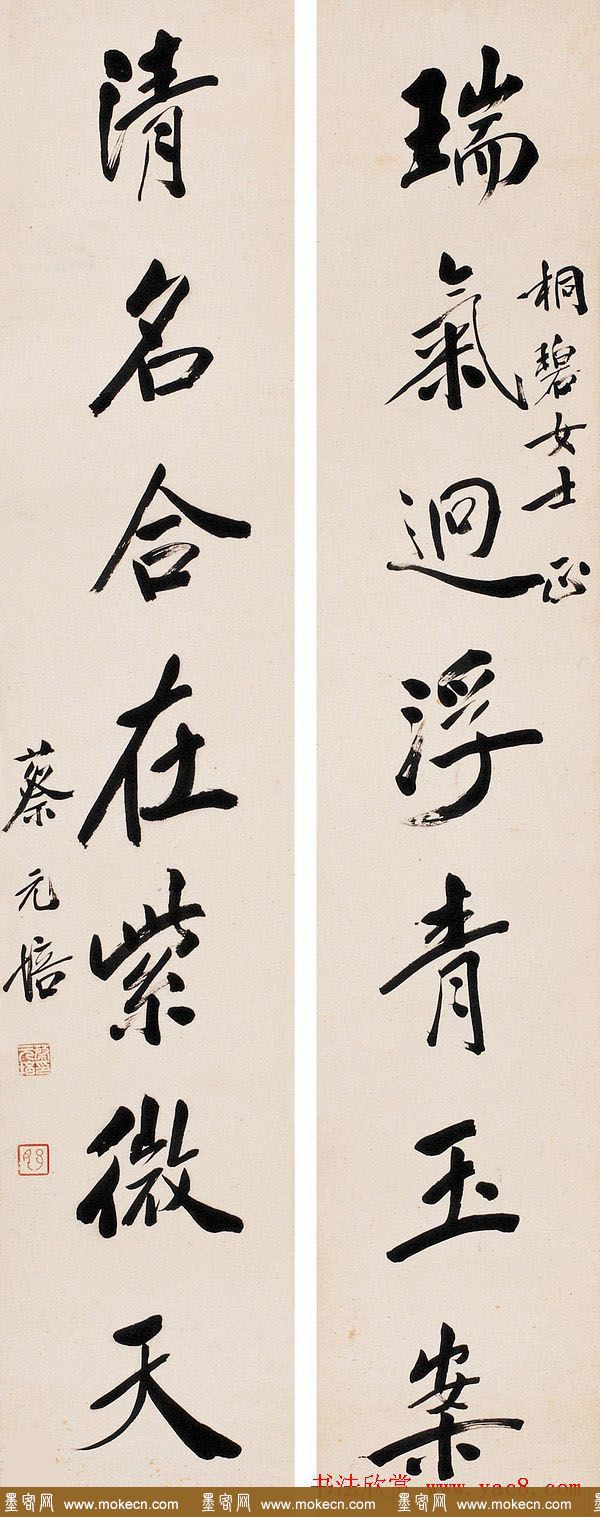 瑞氣迴浮青玉案
桐碧女士正
清名合在紫微天
蔡元培
书法欣赏 www.yac8.com
墨客网 www.mokecn.com 墨客网 www.mokecn.com 墨客网 www.mokecn.com